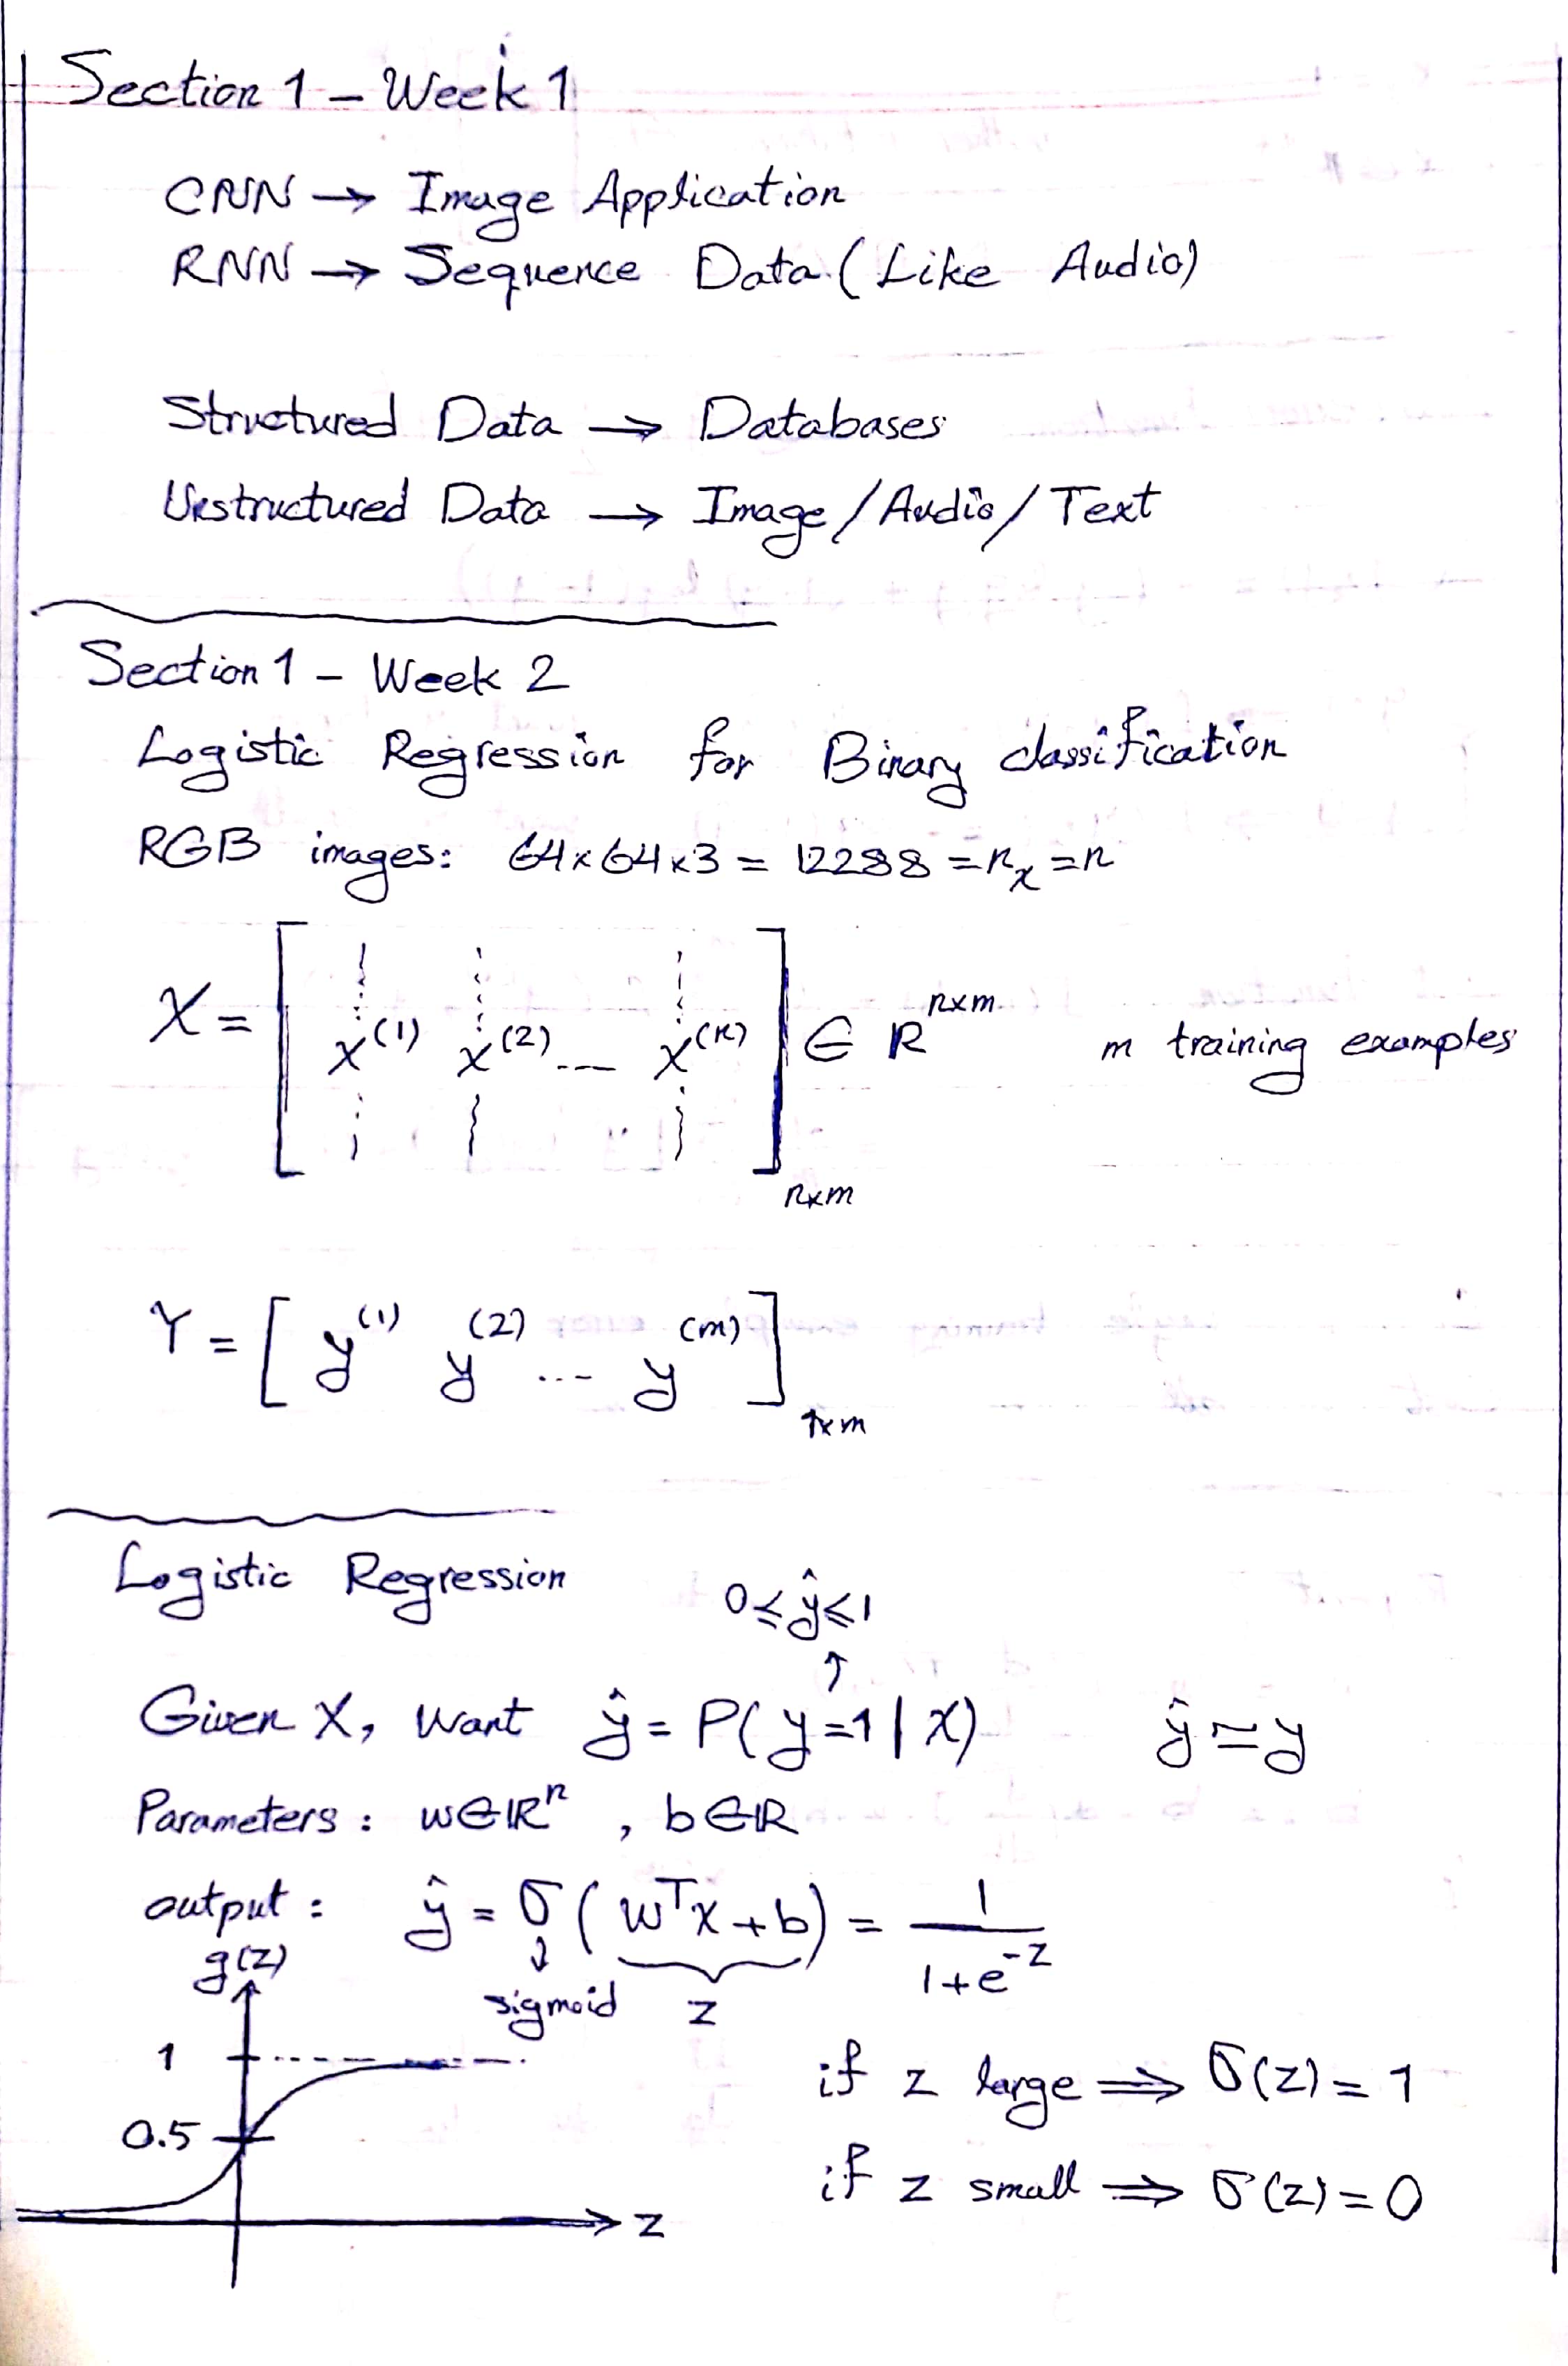 Section 1 – Week 1
CNN → Image Application
RNN → Sequence Data (Like Audio)
Structured Data → Databases
Unstructured Data → Image/Audio/Text
Section 1 – Week 2
Logistic Regression for Binary classification
RGB images: 64×64×3 = 12288 = n_x = n
X = [ x^(1) x^(2) ... x^(n) ]_n×m ∈ R^n×m m training examples
Y = [ y^(1) y^(2) ... y^(m) ]_1×m
Logistic Regression
0 ≤ ŷ ≤ 1
↑
Given X, want ŷ = P(y=1 | X) ŷ ≃ y
Parameters: w ∈ ℝ^n , b ∈ ℝ
output: ŷ = σ(w^T x + b) = 1 / (1+e^-z)
↓ sigmoid z
g(z)
1
0.5
z
if z large ⟹ σ(z) = 1
if z small ⟹ σ(z) = 0